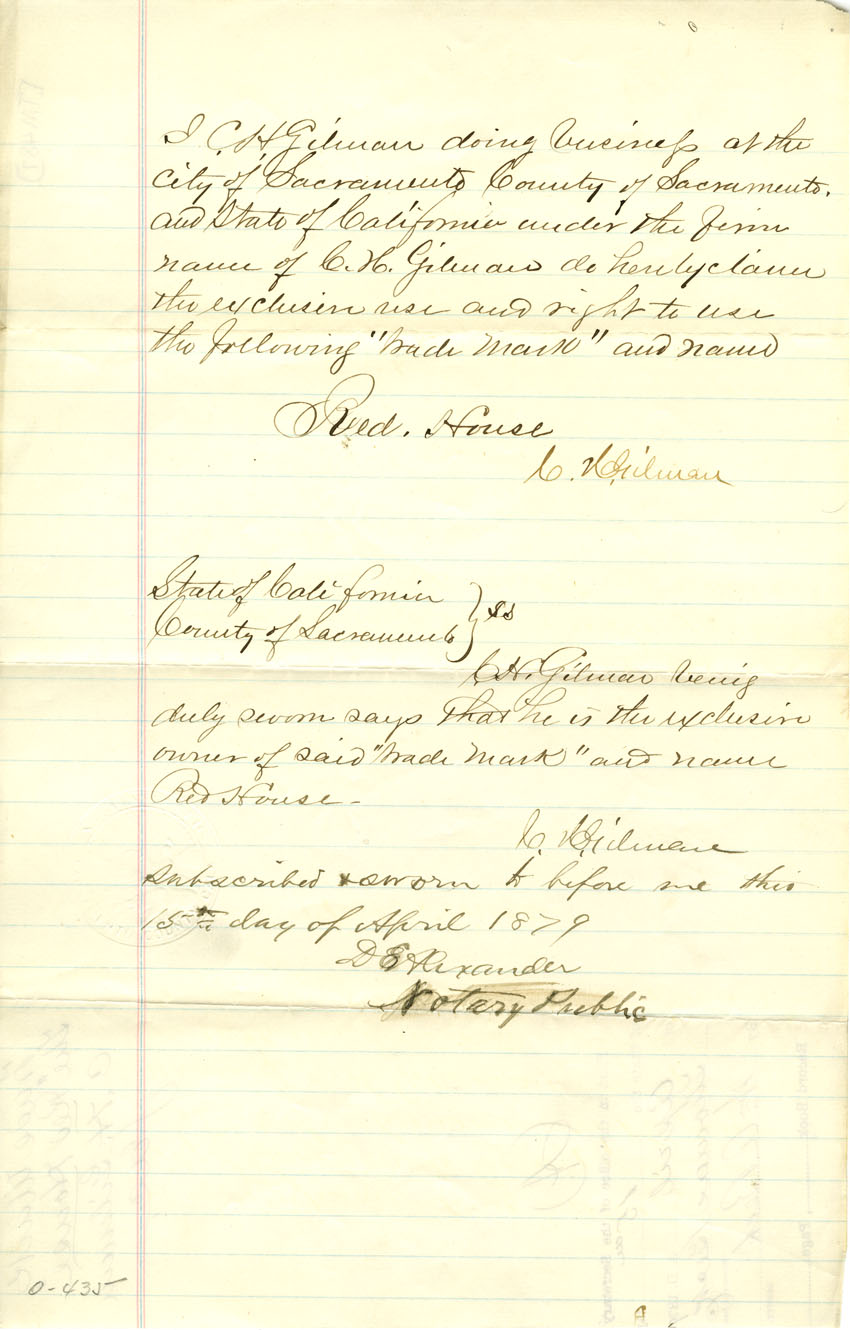 I C. H Gilman doing business at the
City of Sacramento County of Sacramento.
and State of California under the firm
name of C. H. Gilman do hereby claim
the exclusive use and right to use
the following "trade Mark" and name
Red. House
C. H. Gilman
State of California
County of Sacramento } ss
C. H. Gilman being
duly sworn says that he is the exclusive
owner of said "trade Mark" and name
Red House -
C. H. Gilman
subscribed & sworn to before me this
15th day of April 1879
D E Alexander
Notary Public
0-435